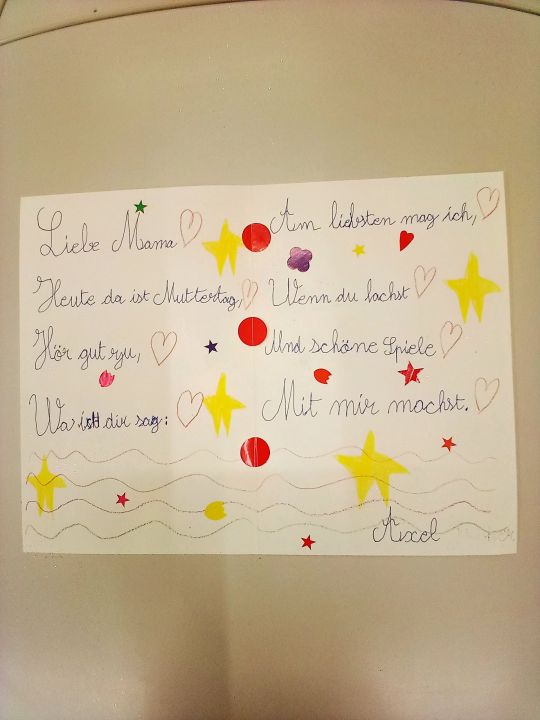 Liebe Mama
Heute da ist Muttertag,
Hör gut zu,
Was ich dir sag:
Am liebsten mag ich,
Wenn du lachst
Und schöne Spiele
Mit mir machst.
Axel